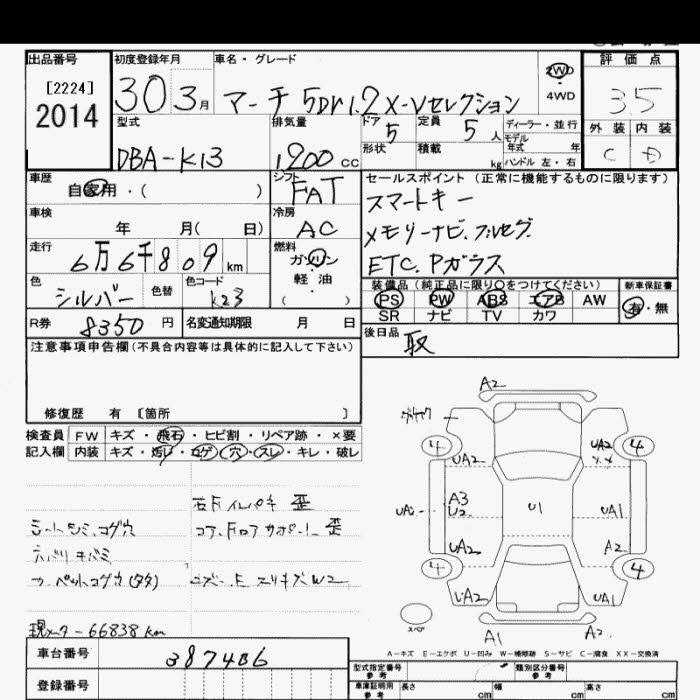 出品番号 初度登録年月 車名・グレード 評価点
[2224]
2014
30 3月 マーチ 5Dr 1.2 X-Vセレクション 2WD 4WD 3.5
型式 排気量 ドア 5 定員 5人 ディーラー・並行 外装 内装
DBA-K13 1200cc 形状 積載 kg モデル年式 年 ハンドル 左・右 C D
車歴 自家用・( ) シフト FAT セールスポイント (正常に機能するものに限ります)
車検 年 月( 日) 冷房 AC スマートキー
メモリーナビ.フルセグ.
走行 6万6千809km 燃料 ガソリン 軽油 ( ) ETC.Pガラス
色 シルバー 色替 色コード K23 装備品 (純正品に限り○をつけてください) 新車保証書
PS PW ABS エアB AW 有・無
SR ナビ TV カワ
R券 8350円 名変通知期限 月 日 後日品 取
注意事項申告欄 (不具合内容等は具体的に記入して下さい)
修復歴 有 [箇所 ]
検査員 FW キズ・飛石・ヒビ割・リペア跡・×要
記入欄 内装 キズ・汚レ・コゲ・穴・スレ・キレ・破レ
シートシミ.コゲ穴
現メーター66838km
A2
4 UA2 UA2 4
UA2 A3 U2 U1 UA1
UA2 A2
4 4
UA2 UA1
スペア
A1 A2
A-キズ E-エクボ U-凹み W-補修跡 S-サビ C-腐食 XX-交換済
車台番号 387406 型式指定番号 参考 類別区分番号
登録番号 車庫証明用 参考 長さ cm 幅 cm 高さ cm